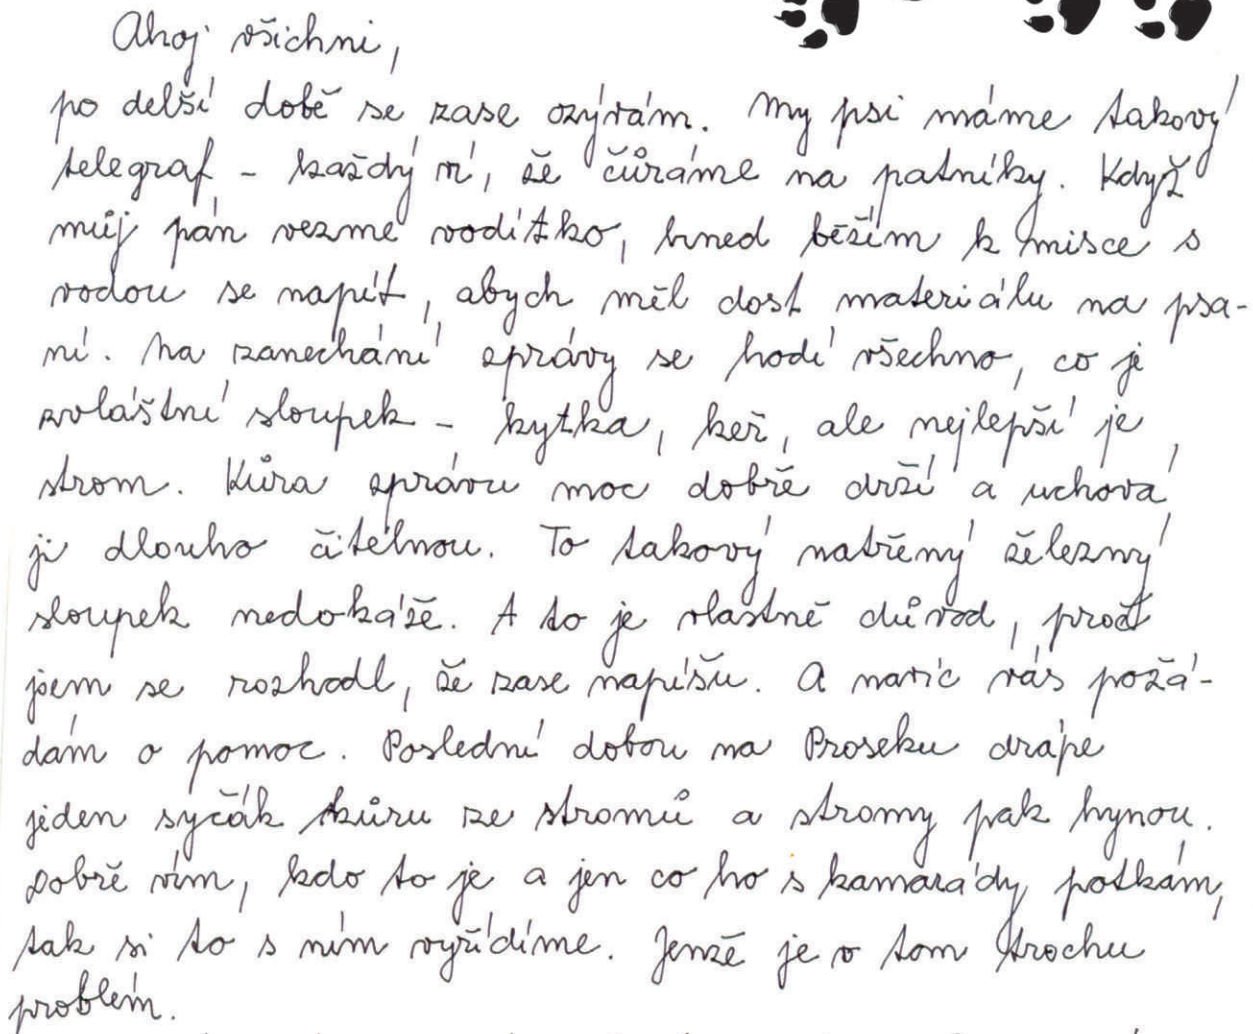 Ahoj všichni,
po delší době se zase ozývám. My psi máme takový
telegraf - každý ví, že čůráme na patníky. Když
můj pán vezme vodítko, hned běžím k misce s
vodou se napít, abych měl dost materiálu na psa-
ní. Na zanechání zprávy se hodí všechno, co je
zvláštní sloupek - kytka, keř, ale nejlepší je
strom. Kůra zprávu moc dobře drží a uchová
ji dlouho čitelnou. To takový natřený železný
sloupek nedokáže. A to je vlastně důvod, proč
jsem se rozhodl, že zase napíšu. A navíc vás požá-
dám o pomoc. Poslední dobou na Proseku drápe
jeden syčák kůru ze stromů a stromy pak hynou.
Dobře vím, kdo to je a jen co ho s kamarády potkám,
tak si to s ním vyřídíme. Jenže je v tom trochu
problém.